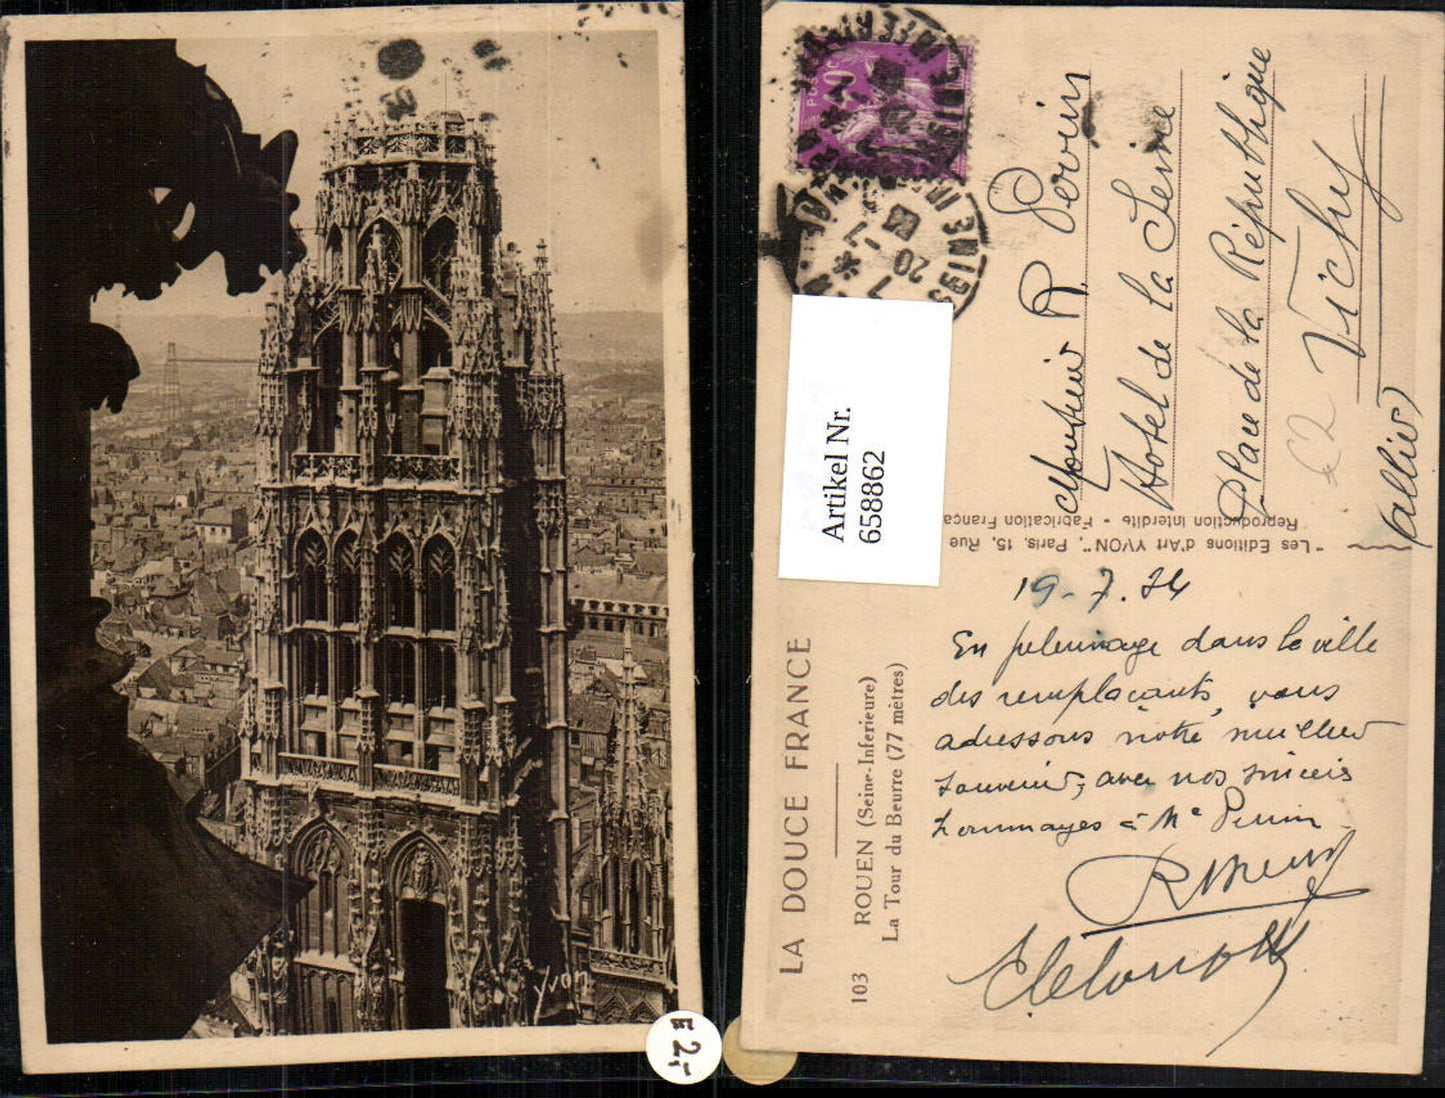 Yvon
E 2,-
40
POSTES
SEINE INFRE
20 -7
34
Artikel Nr.
658862
Monsieur R Perrin
Hotel de la Seine
Place de la République
Vichy
(Allier)
E2
"Les Editions d'Art YVON", Paris, 15, Rue
Reproduction Interdite - Fabrication França
LA DOUCE FRANCE
103 ROUEN (Seine-Inférieure)
La Tour du Beurre (77 mètres)
19-7.34
En pélerinage dans la ville
des remplaçants, vous
adressons notre meilleur
souvenir, avec nos sincères
hommages à Me Perrin